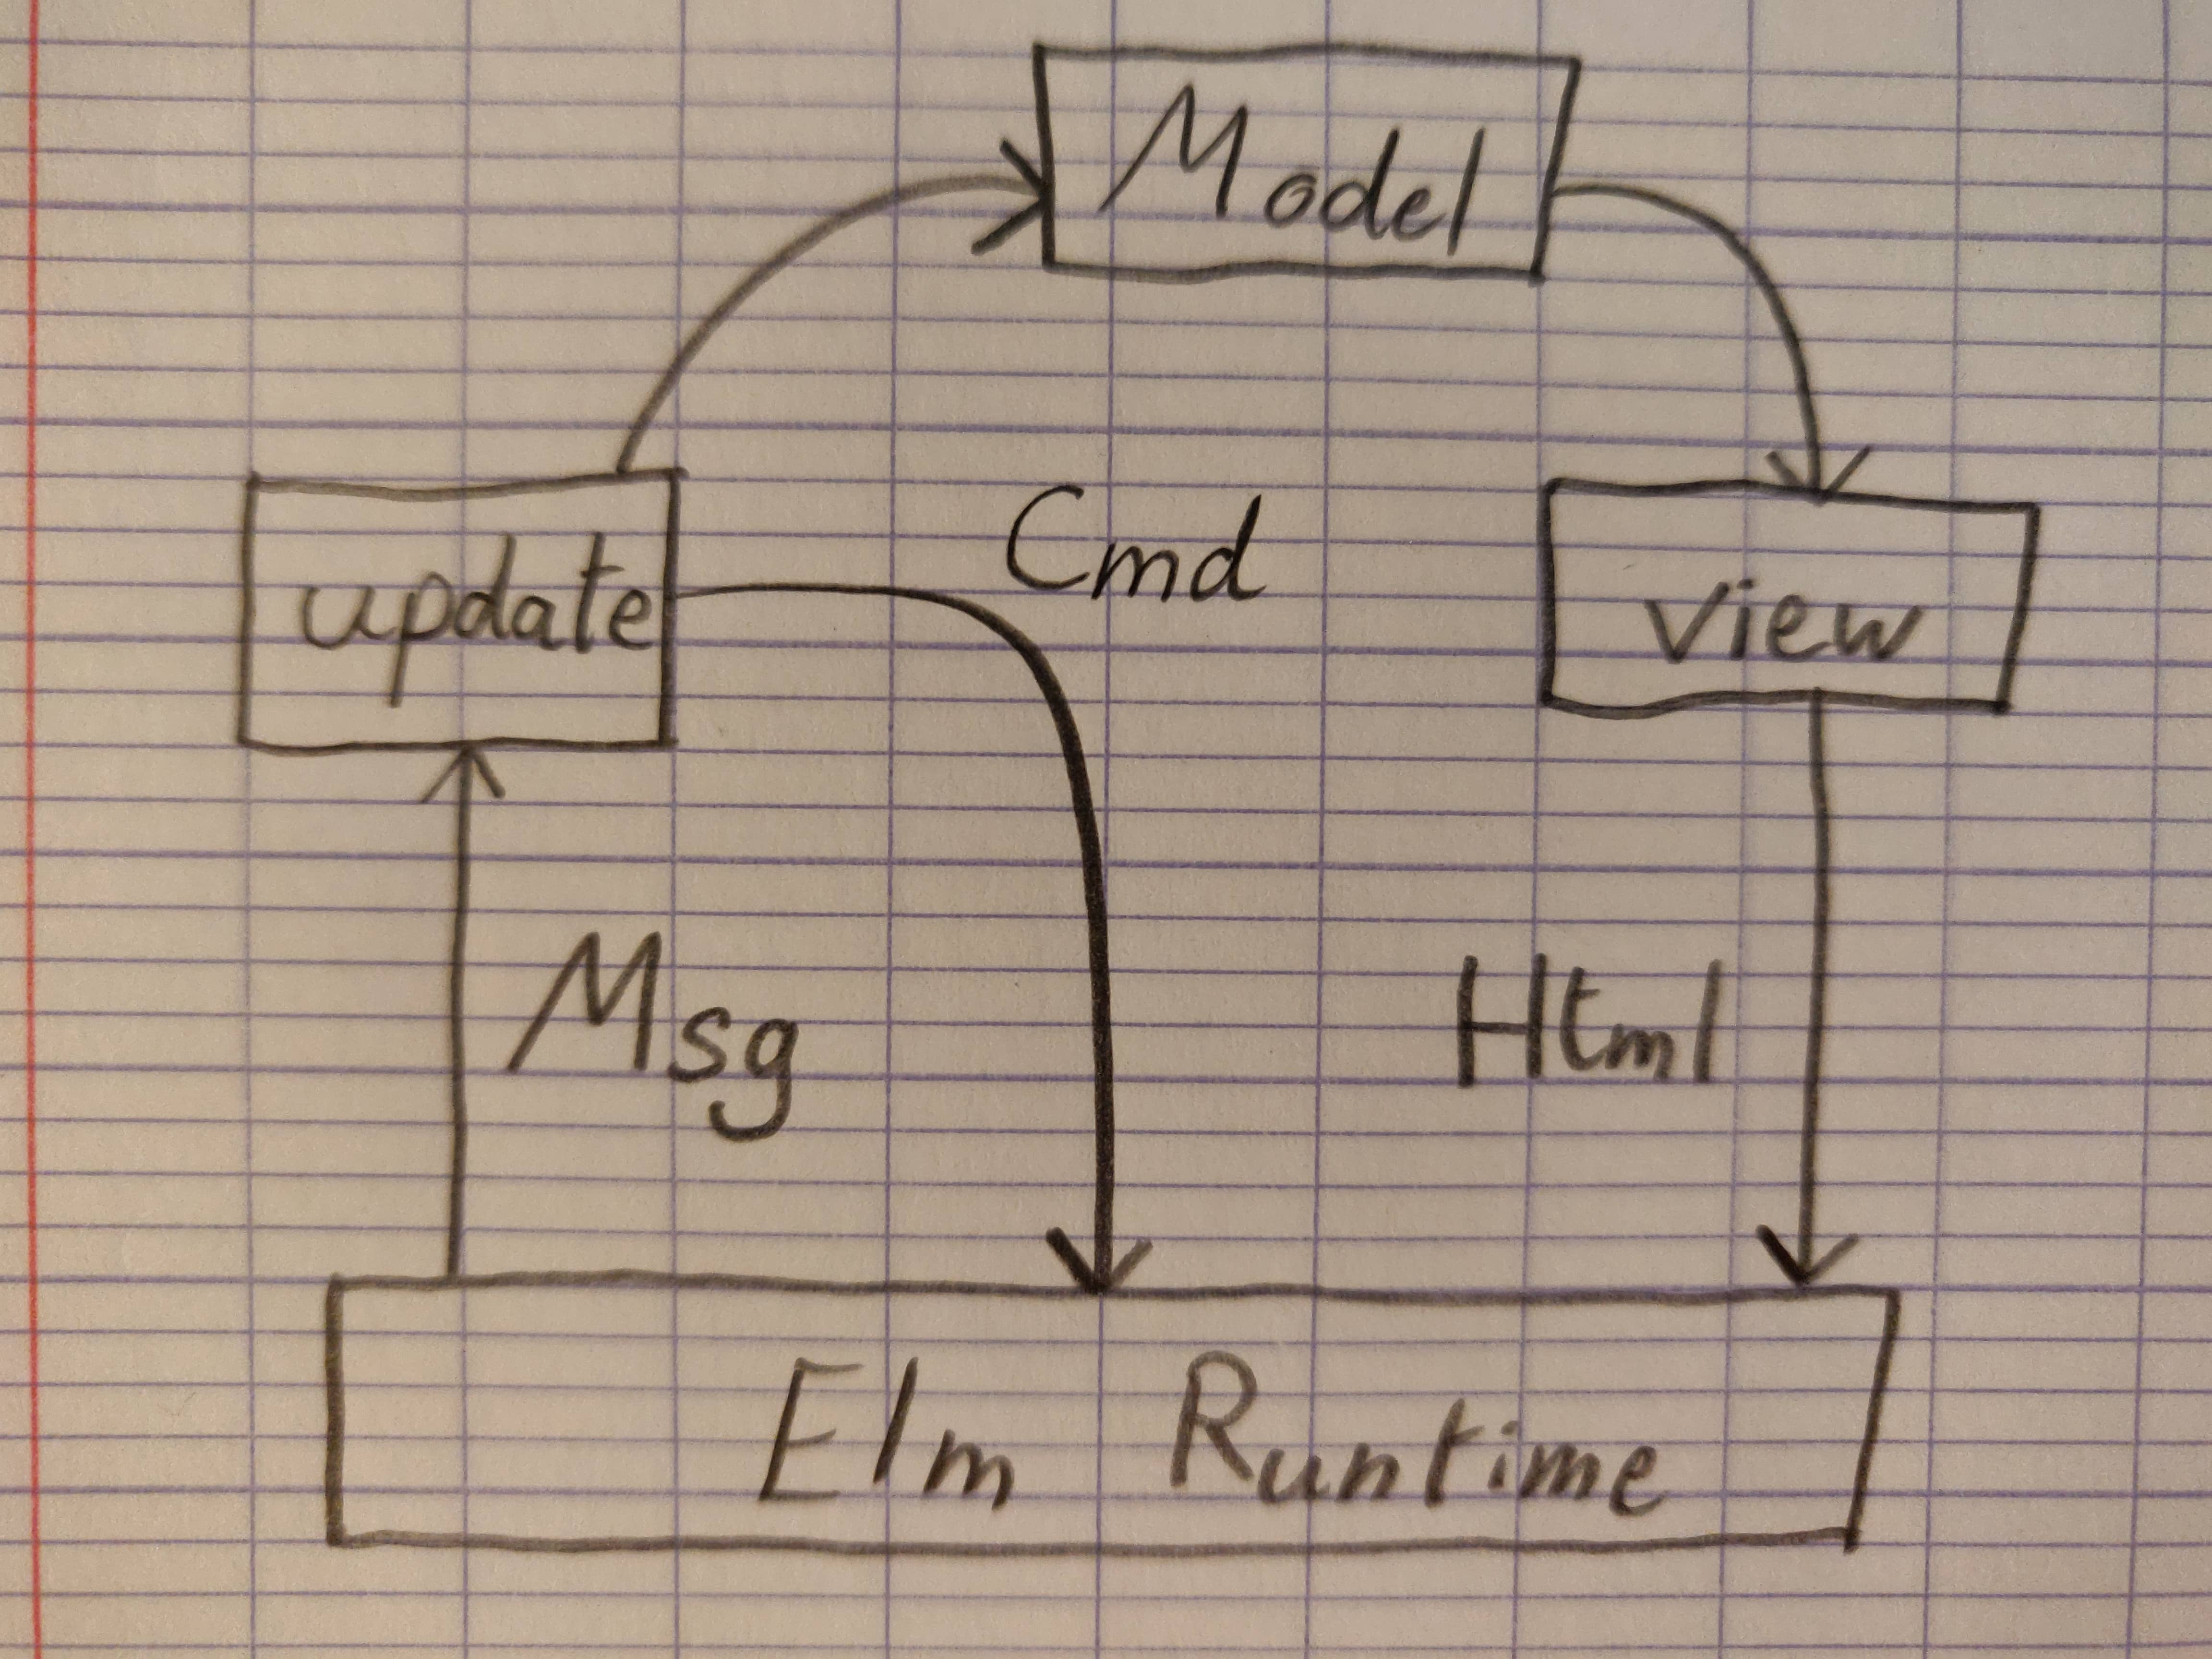 Model
Cmd
update
view
Msg
Html
Elm Runtime